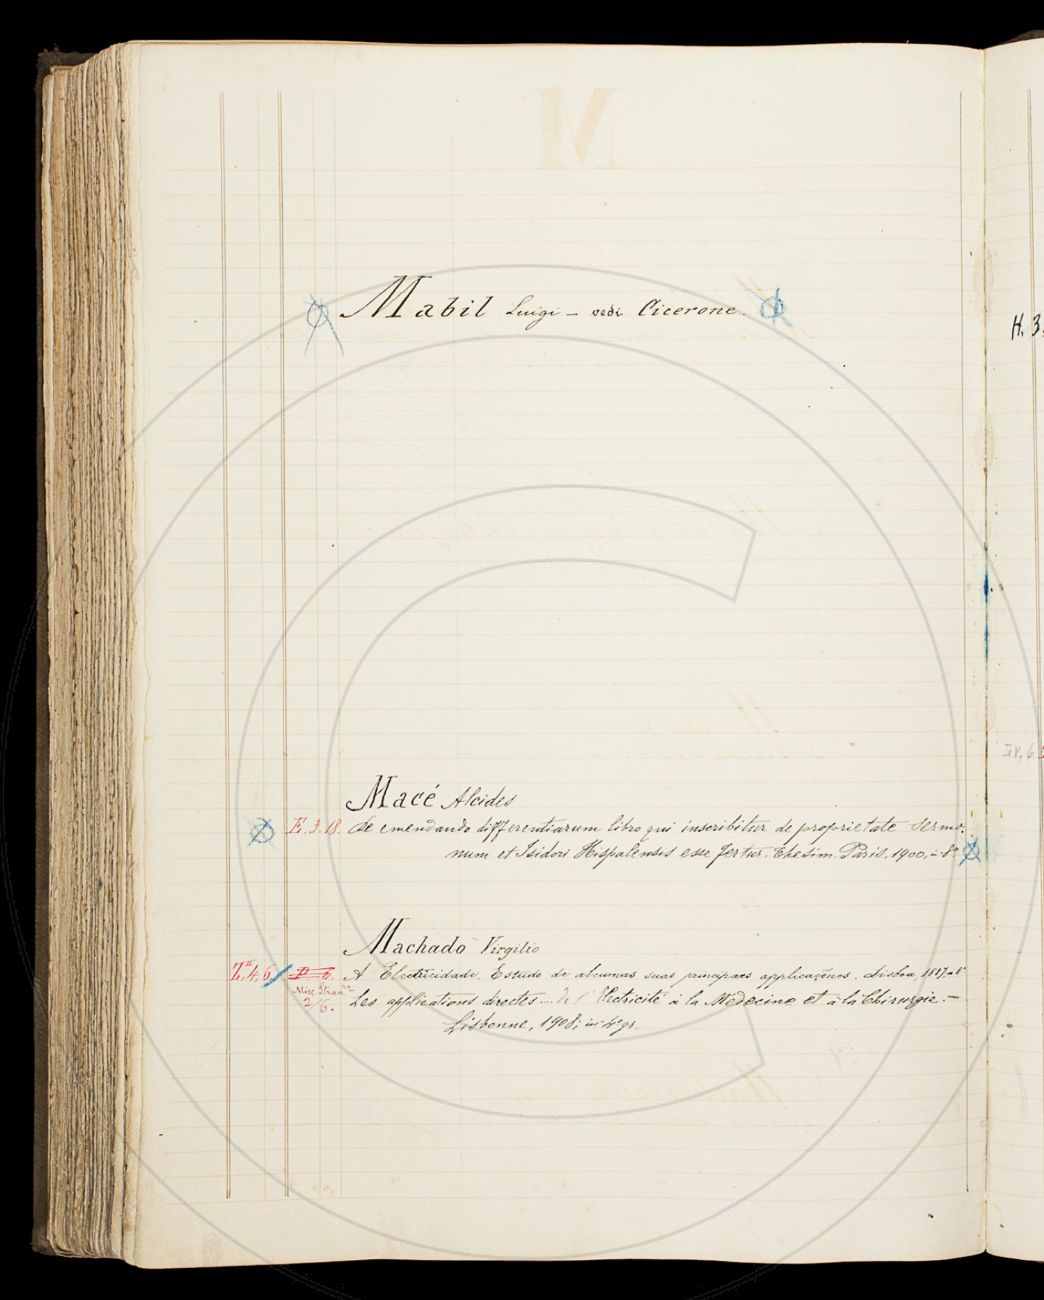 Mabil Luigi – vedi Cicerone.
H. 3.
Macé Alcides
E. 3. 18. De emendando differentiarum libro qui inscribitur de proprietate sermo-
num et Isidori Hispalensis esse fertur. Thesim. Paris, 1900, in-8º
Machado Virgilio
Z. 4. 6 A Electricidade. Estudo de algumas suas principaes applicações. Lisboa, 1887, in-8º
Misc. Stran.
2/6. Les applications directes de l'Electricité à la Medecine et à la Chirurgie. –
Lisbonne, 1908, in-4º gr.